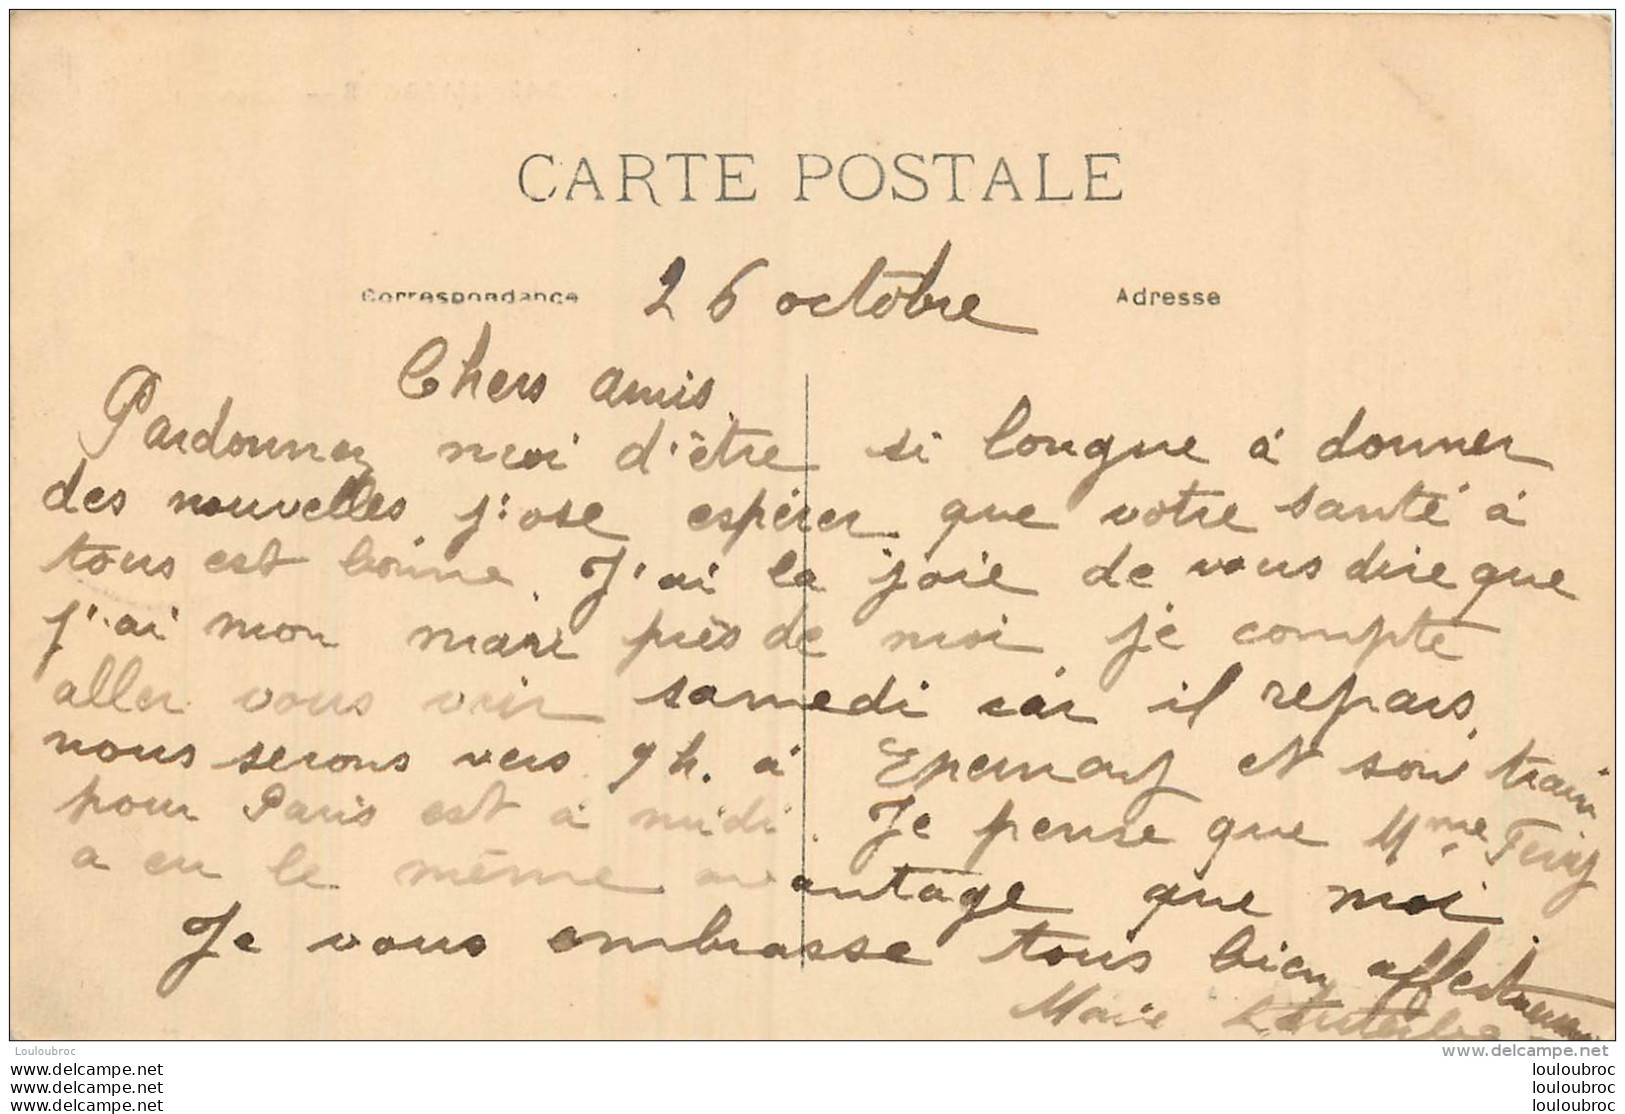 CARTE POSTALE
Correspondance 26 octobre Adresse
Chers amis.
Pardonnez moi d'être si longue à donner
des nouvelles j'ose espérer que votre santé à
tous est bonne. J'ai la joie de vous dire que
j'ai mon mari près de moi je compte
aller vous voir samedi car il repars.
nous serons vers 9h. à Epernay et son train
pour Paris est à midi. Je pense que Mme
a eu le même avantage que moi
Je vous embrasse tous bien affectueusement
Marie
Louloubroc
www.delcampe.net
louloubroc louloubroc
louloubroc louloubroc
louloubroc louloubroc